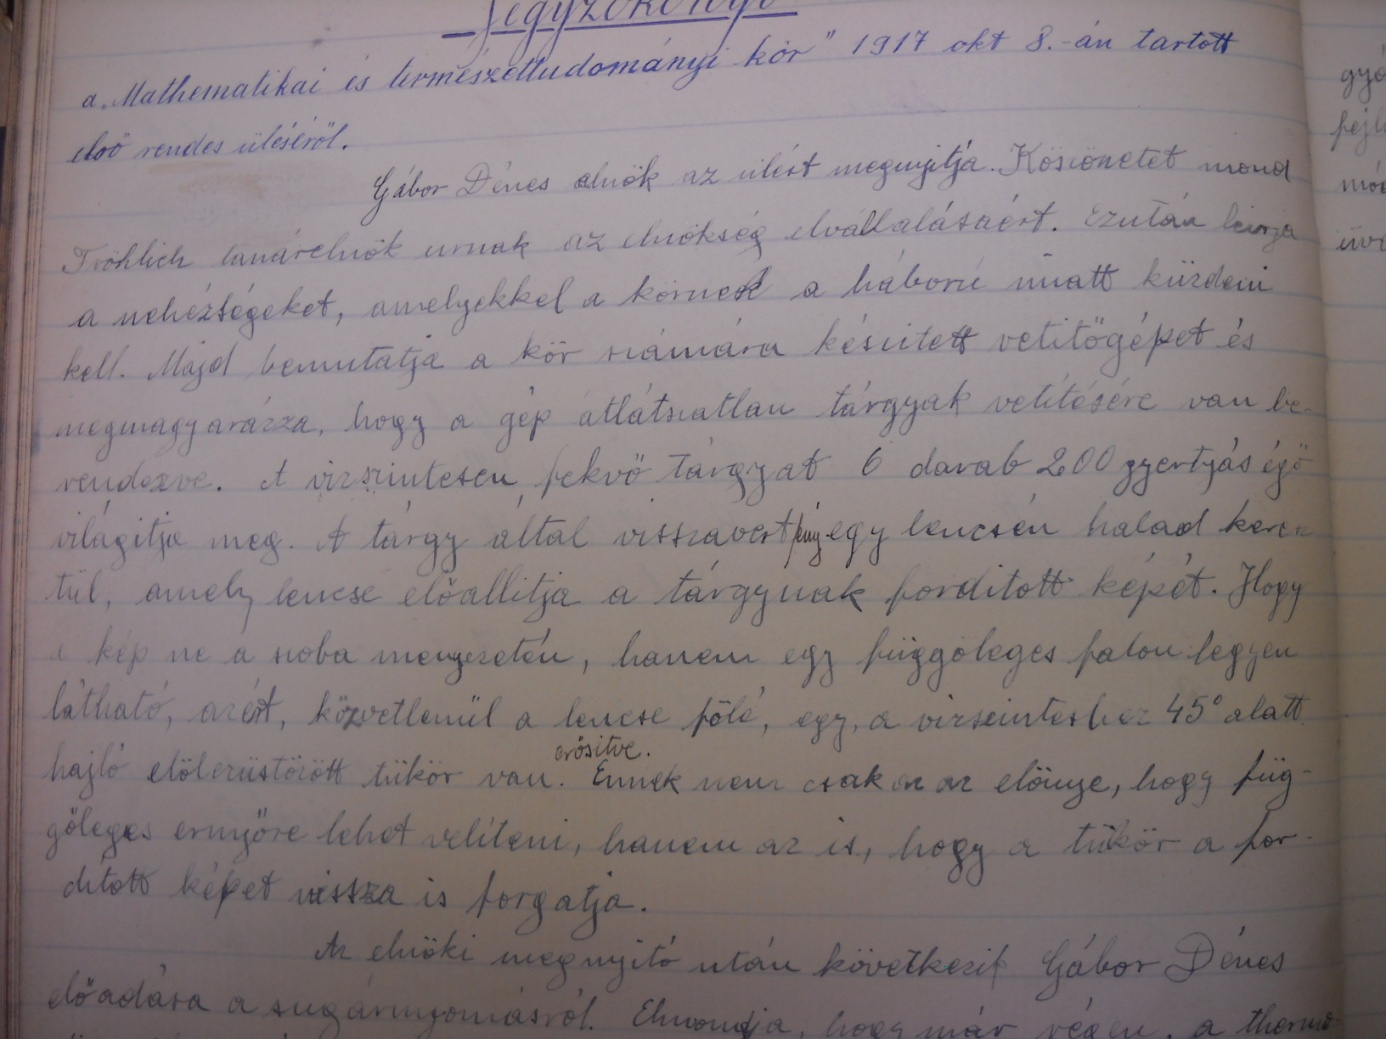 Jegyzőkönyv
a „Mathematikai és természettudományi kör" 1917 okt 8.-án tartott
első rendes üléséről.
Gábor Dénes elnök az ülést megnyitja. Köszönetet mond
Fröhlich tanárelnök urnak az elnökség elvállalásáért. Ezután leirja
a nehézségeket, amelyekkel a körnek a háború miatt küzdeni
kell. Majd bemutatja a kör számára készitett vetitőgépet és
megmagyarázza, hogy a gép átlátszatlan tárgyak vetítésére van be-
rendezve. A vizszintesen fekvő tárgyat 6 darab 200 gyertyás égő
világitja meg. A tárgy által visszavert fény egy lencsén halad keresz-
tül, amely lencse előállitja a tárgynak forditott képét. Hogy
a kép ne a szoba menyezetén, hanem egy függőleges falon legyen
látható, azért, közvetlenül a lencse fölé, egy, a vizszinteshez 45° alatt
hajló elölezüstözött tükör van erősitve. Ennek nem csak az az előnye, hogy füg-
gőleges ernyőre lehet vetíteni, hanem az is, hogy a tükör a for-
dított képet vissza is forgatja.
Az elnöki megnyitó után következik Gábor Dénes
előadása a sugárnyomásról. Elmondja, hogy már régen, a thermo-
gyá
fejl